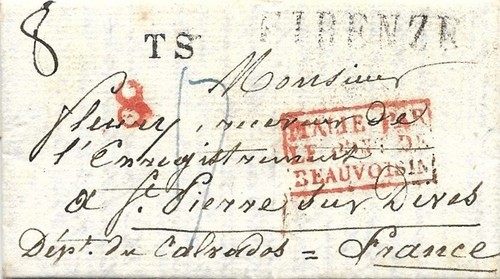 8
TS
FIRENZE
Monsieur
fleury, receveur de
l'Enregistrement
à St. Pierre sur Dives
Dépt. du Calvados = France
LE PONT DE
BEAUVOISIN